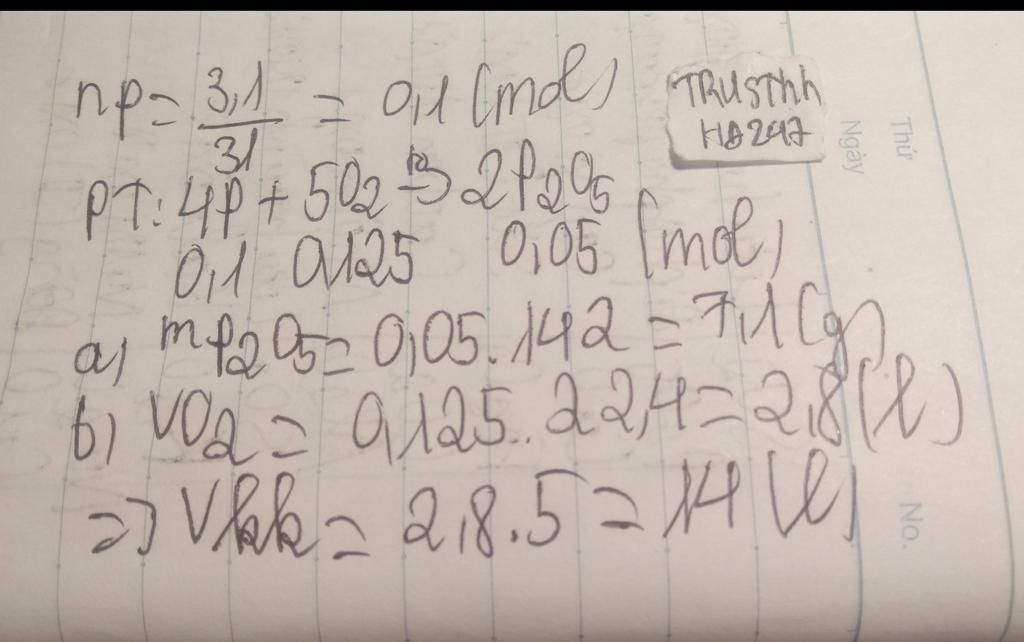 np = 3,1/31 = 0,1 (mol)
TRUSThh
HA247
PT: 4P + 5O2 → 2P2O5
0,1 0,125 0,05 (mol)
a) mP2O5 = 0,05.142 = 7,1 (g)
b) VO2 = 0,125.22,4 = 2,8 (l)
=> Vkk = 2,8.5 = 14 (l)
Thứ
Ngày
No.